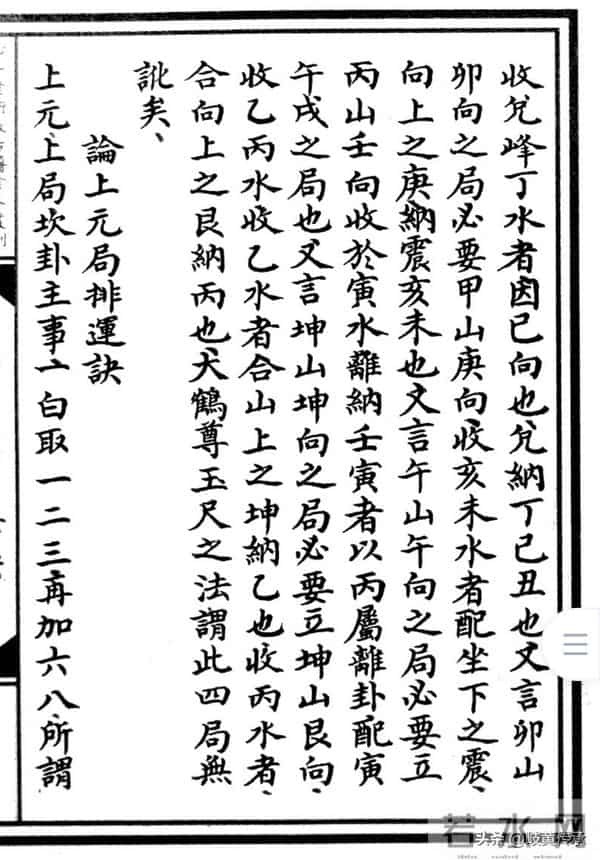 收兌峰丁水者因巳向也兌納丁巳丑也又言卯山
卯向之局必要甲山庚向收亥未水者配坐下之震、
向上之庚納震亥未也又言午山午向之局必要立
丙山壬向收於寅水離納壬寅者以丙屬離卦配寅
午戌之局也又言坤山坤向之局必要立坤山艮向、
收乙丙水收乙水者合山上之坤納乙也收丙水者、
合向上之艮納丙也犬鶴尊玉尺之法謂此四局無
訛矣、
論上元局排運訣
上元、上局坎卦主事一白取一二三再加六八所謂
若水网
头条